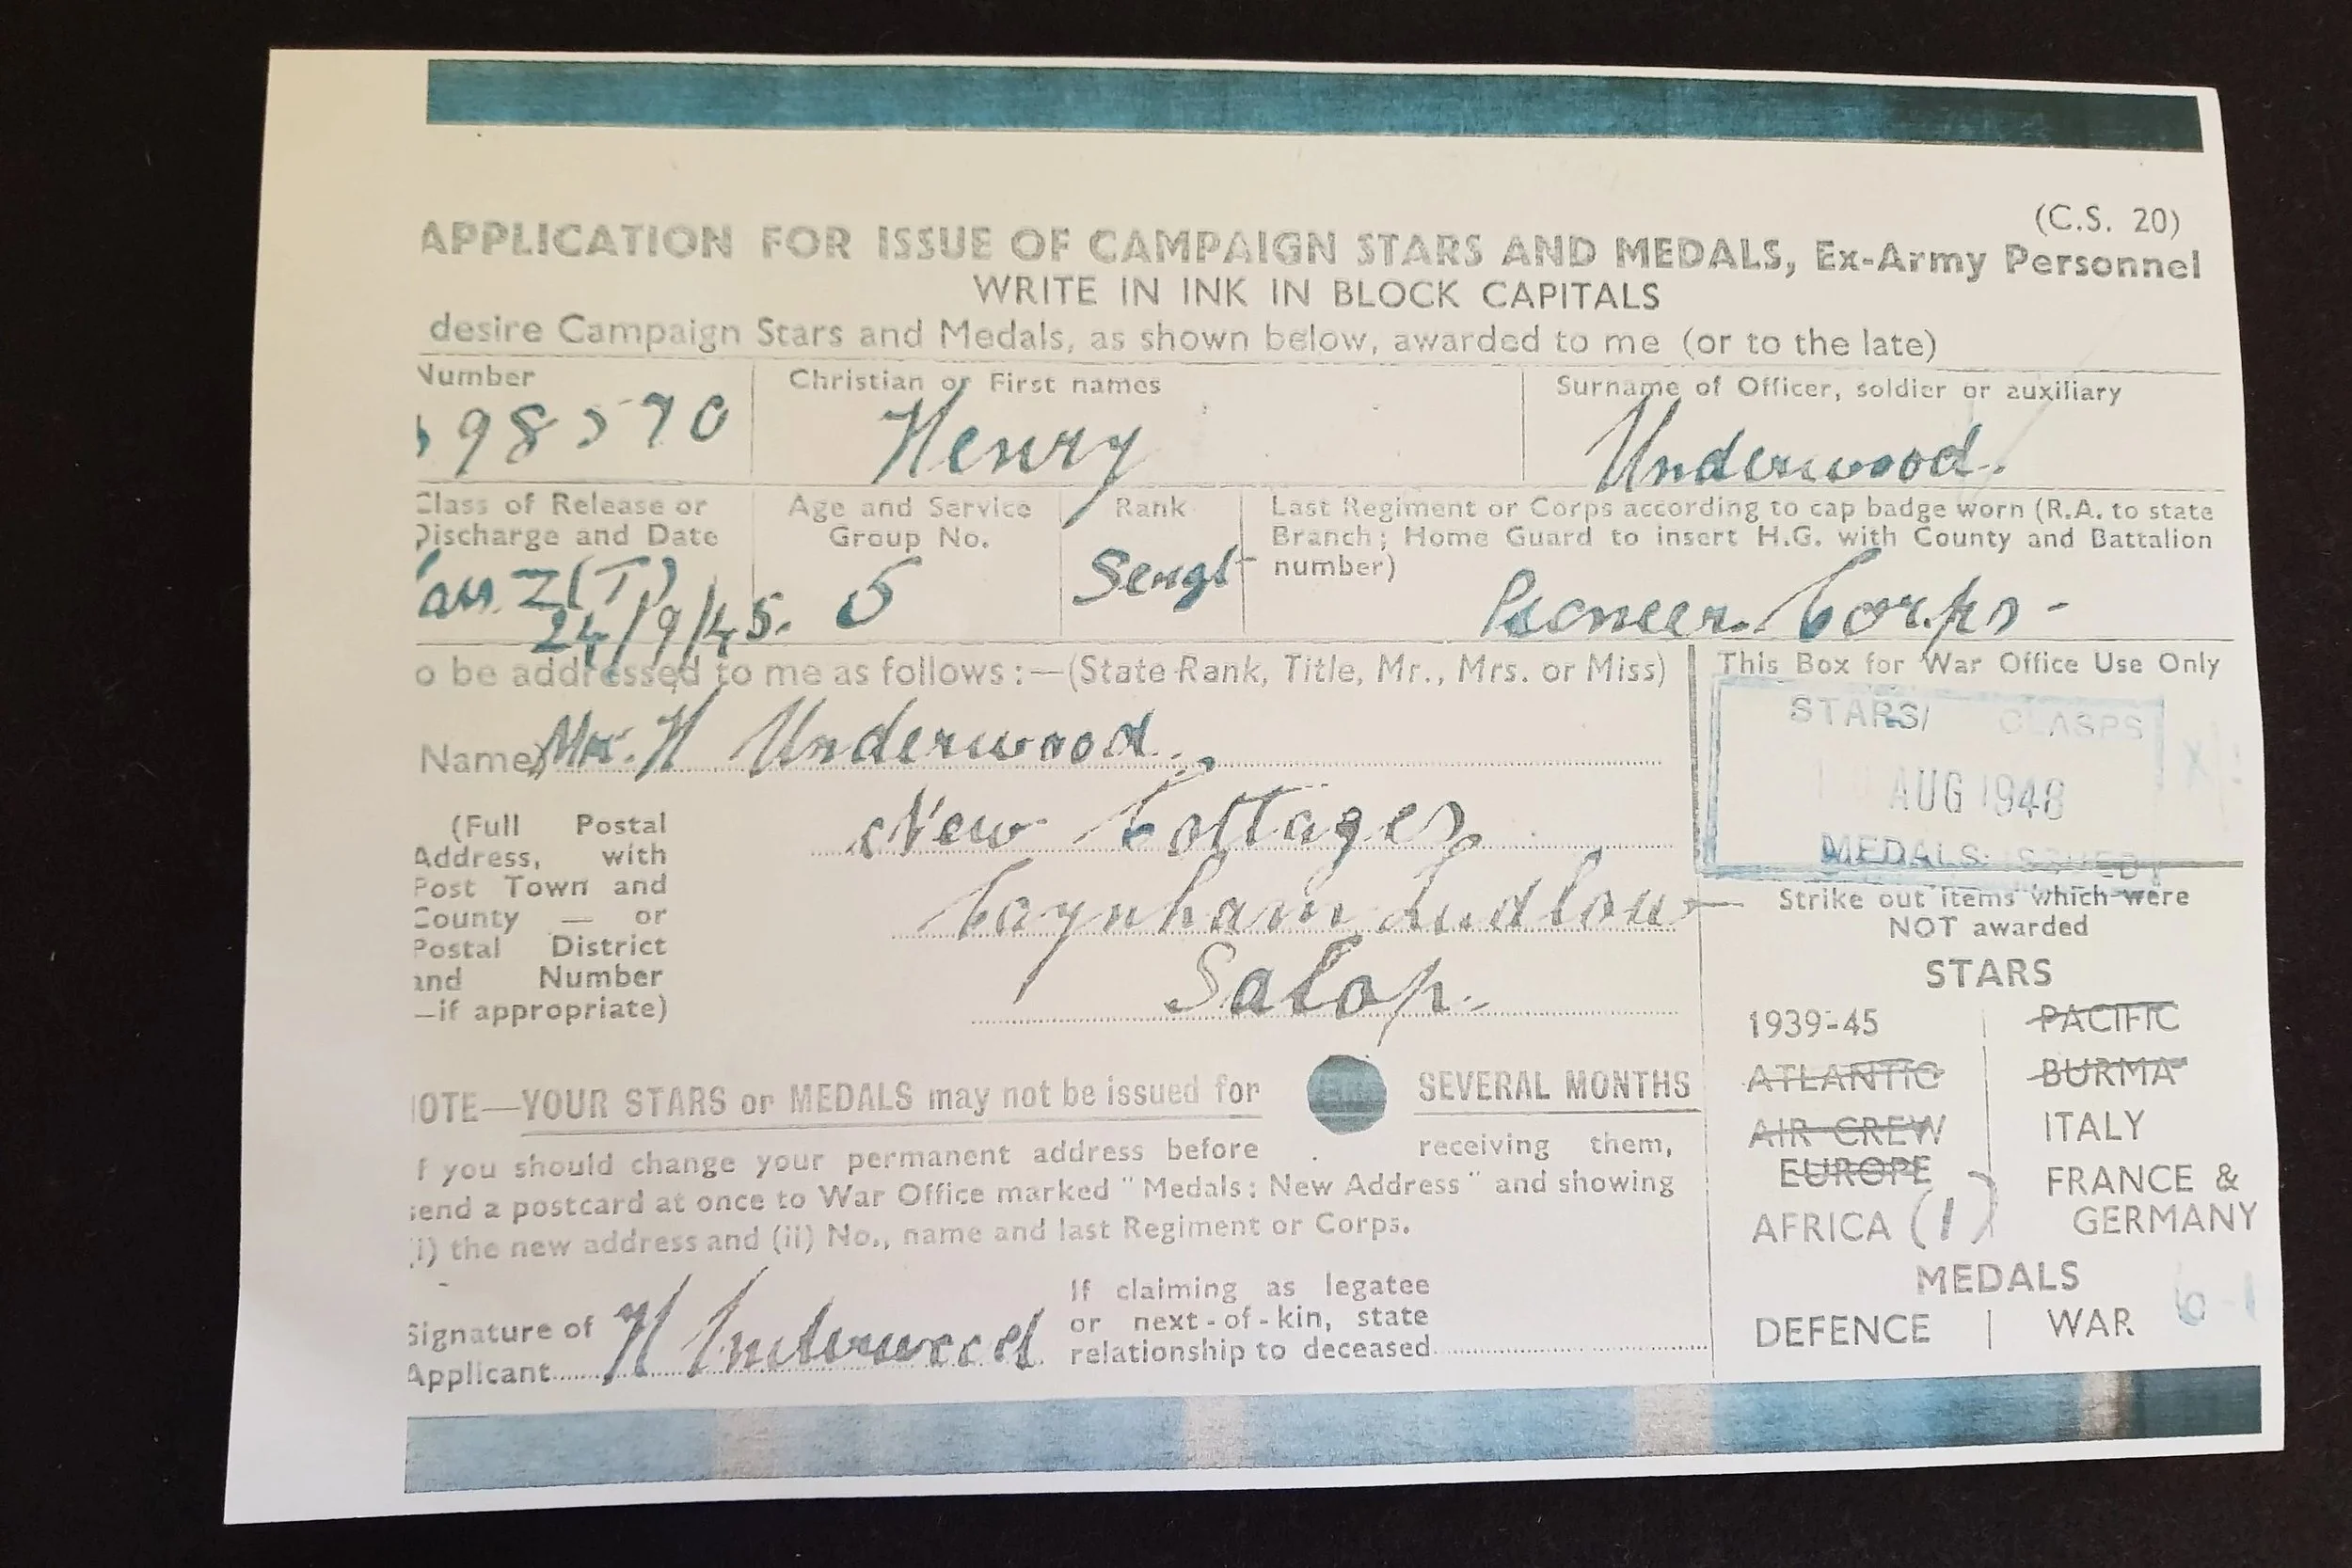 (C.S. 20)
APPLICATION FOR ISSUE OF CAMPAIGN STARS AND MEDALS, Ex-Army Personnel
WRITE IN INK IN BLOCK CAPITALS
desire Campaign Stars and Medals, as shown below, awarded to me (or to the late)
Number
98570
Christian or First names
Henry
Surname of Officer, soldier or auxiliary
Underwood.
Class of Release or
Discharge and Date
Z(T)
24/9/45.
Age and Service
Group No.
5
Rank
Sergt
Last Regiment or Corps according to cap badge worn (R.A. to state
Branch; Home Guard to insert H.G. with County and Battalion
number)
Pioneer Corps-
o be addressed to me as follows:—(State Rank, Title, Mr., Mrs. or Miss)
Name) Mr. H Underwood.
(Full Postal
Address, with
Post Town and
County — or
Postal District
and Number
—if appropriate)
New Cottages
Caynham Ludlow
Salop.
OTE—YOUR STARS or MEDALS may not be issued for SEVERAL MONTHS
f you should change your permanent address before receiving them,
send a postcard at once to War Office marked "Medals: New Address" and showing
(i) the new address and (ii) No., name and last Regiment or Corps.
Signature of
Applicant H Underwood
If claiming as legatee
or next-of-kin, state
relationship to deceased
This Box for War Office Use Only
STARS/ CLASPS
AUG 1948
MEDALS ISSUED
Strike out items which were
NOT awarded
STARS
1939-45 | PACIFIC
ATLANTIC | BURMA
AIR CREW | ITALY
EUROPE
AFRICA (1)
FRANCE &
GERMANY
MEDALS
DEFENCE | WAR